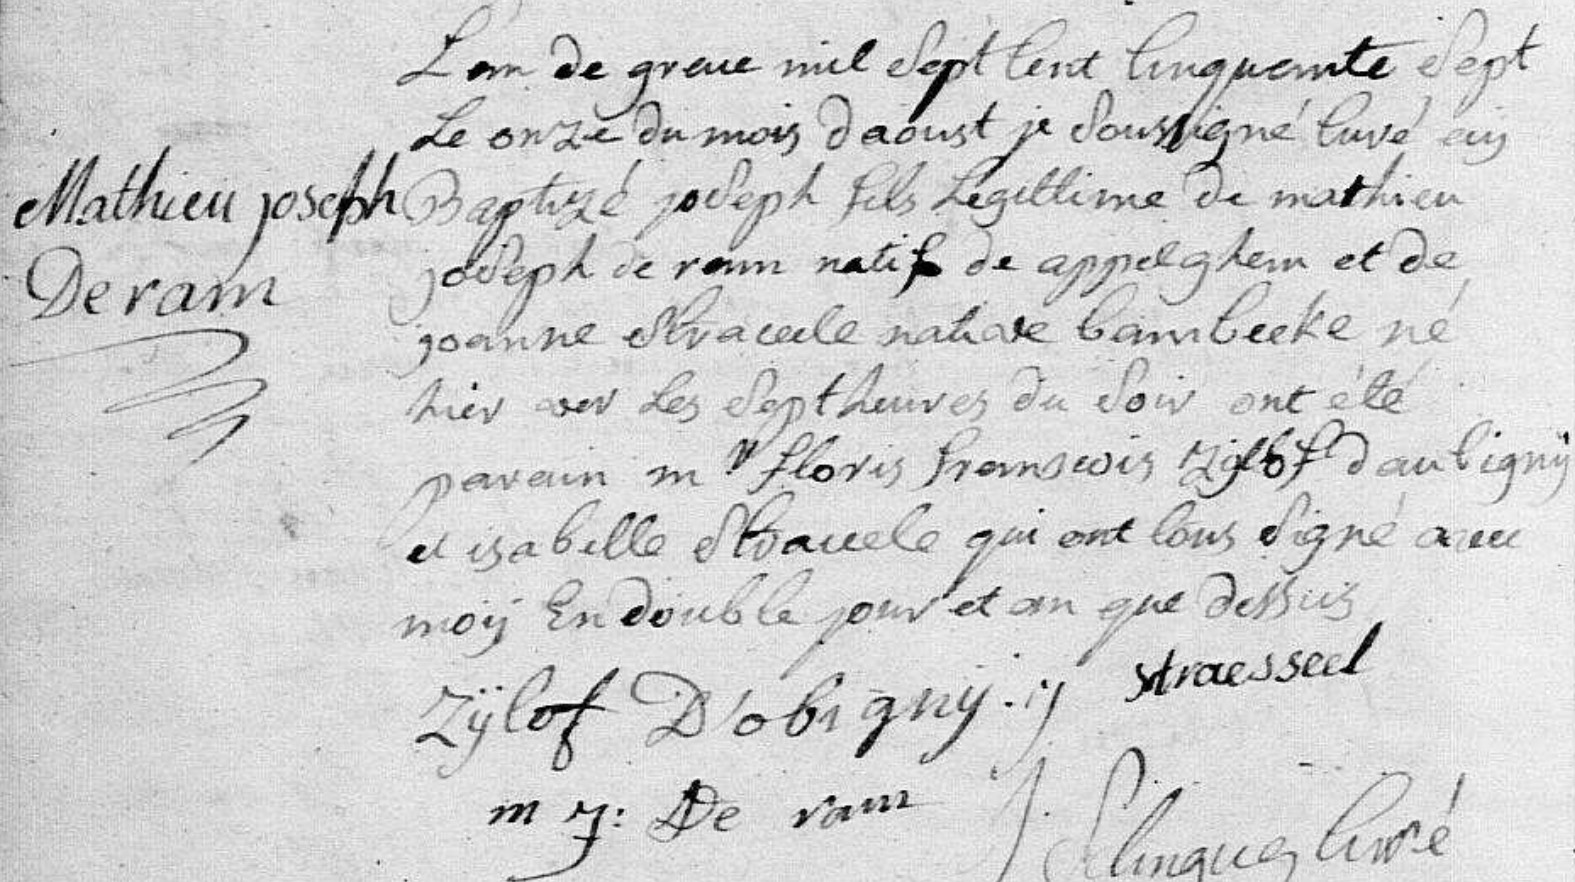 L an de grace mil sept cent cinquante sept
Le onze du mois d aoust je soussigné curé ais
Mathieu joseph
Baptizé joseph fils Legittime de mathieu
joseph de ram natif de appelghem et de
De ram
joanne Stracele nati de bambeeke né
hier ver Les sept heures du soir ont été
parain m r floris fransois zylof d aubignij
et isabelle Stracele qui ont tous signé avec
moij En double jour et an que dessus
straesseel
Zÿlof D'obignÿ
m J: De ram
curé